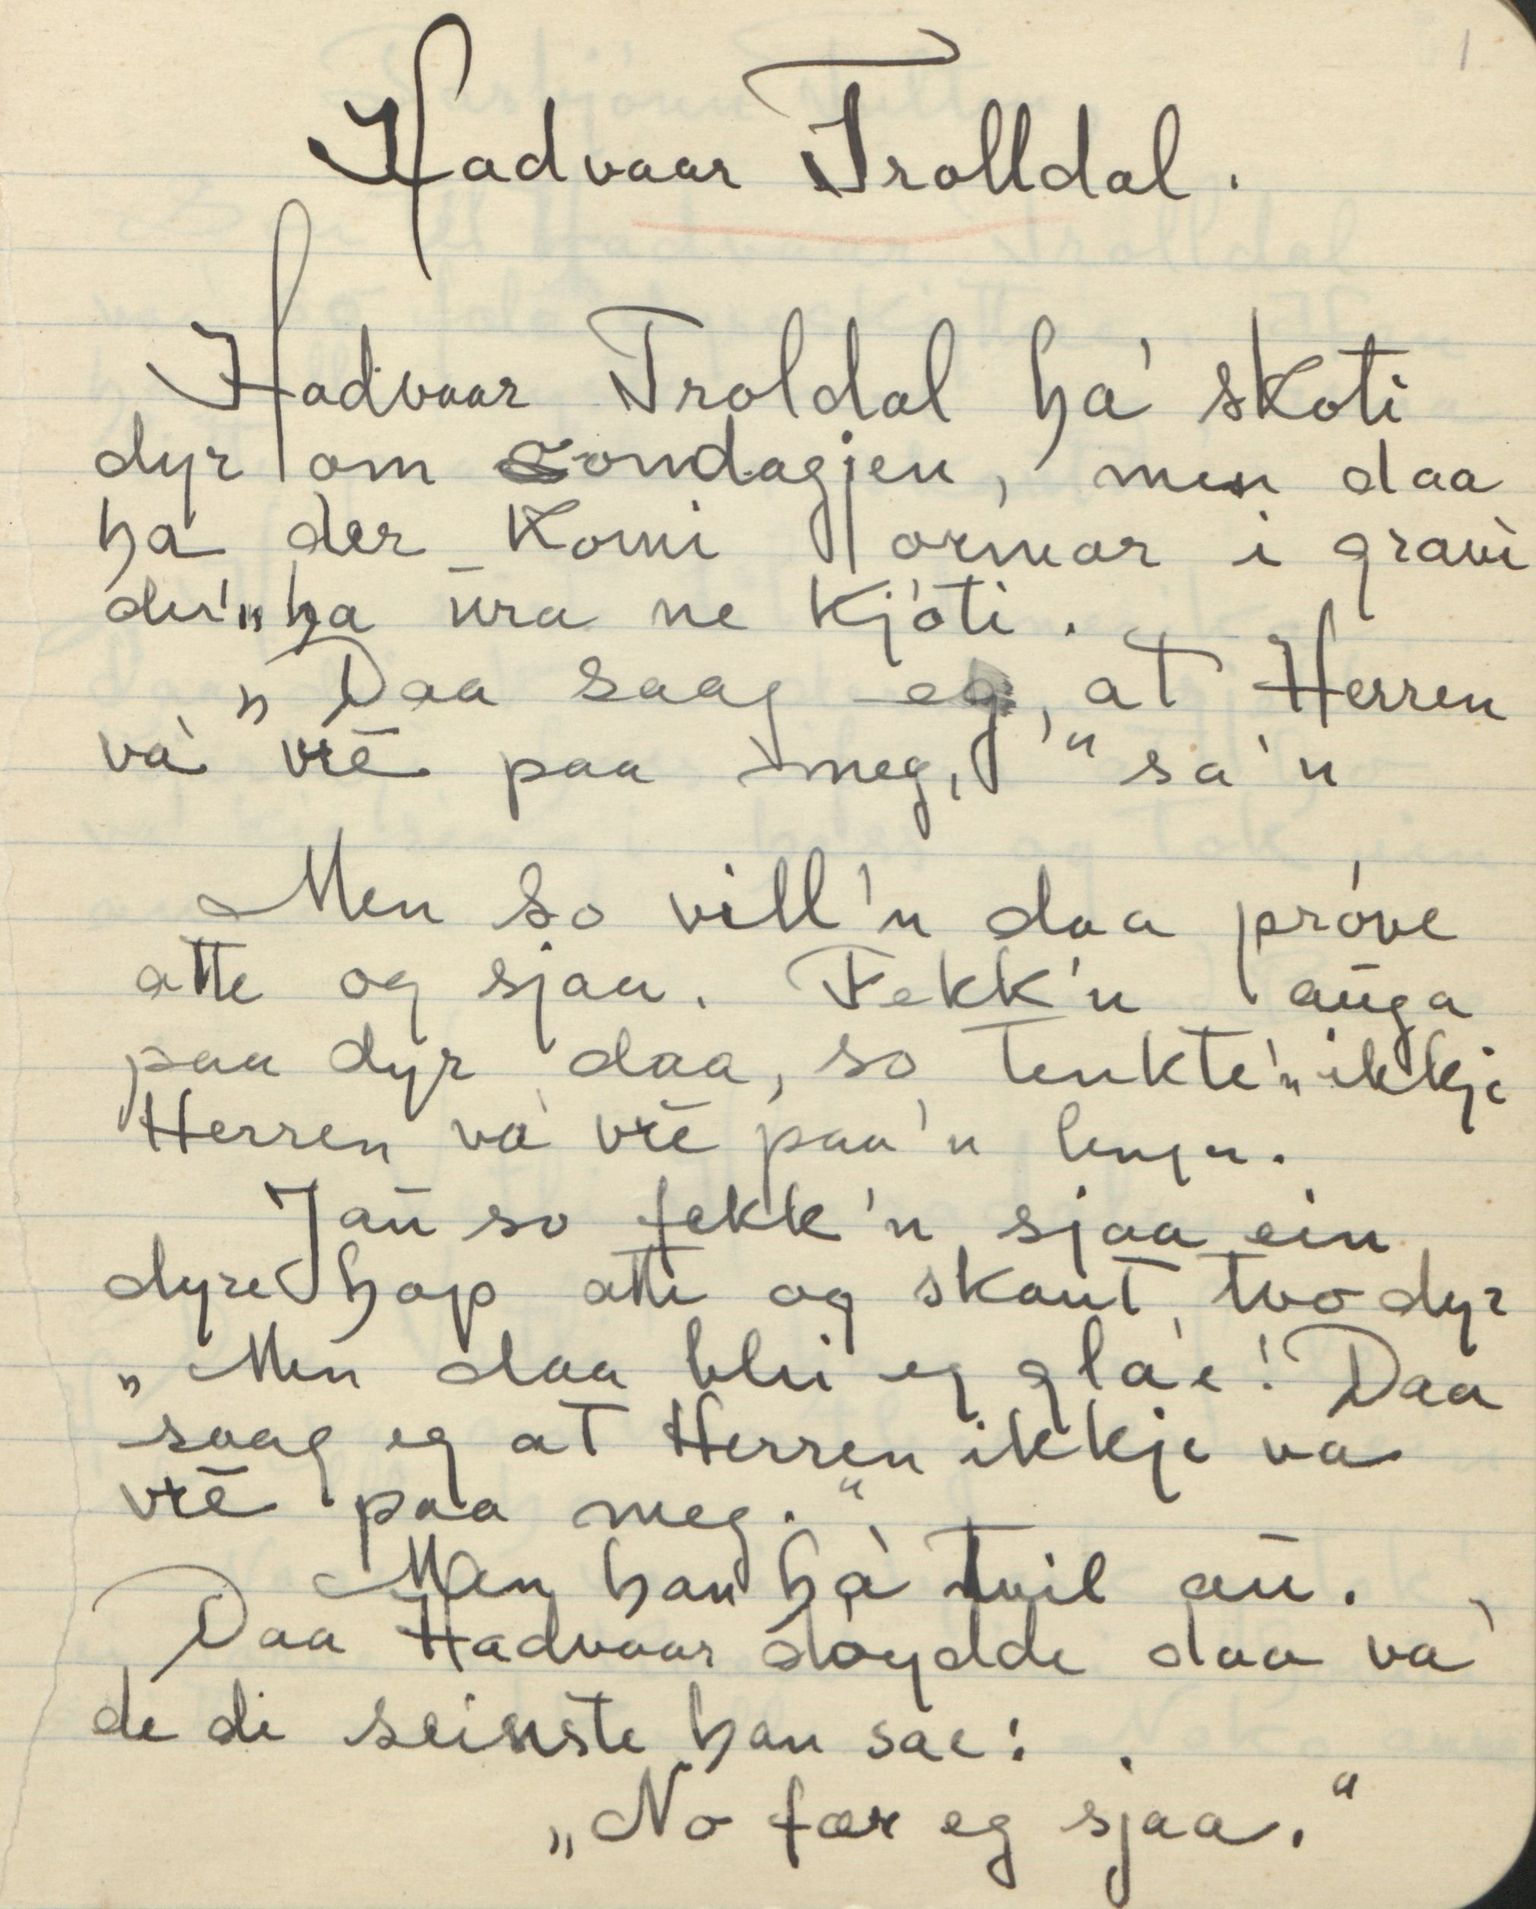 1
Hadvaar Trolldal.
Hadvaar Troldal ha' skoti
dyr om sondagjen, men daa
ha der komi ormar i gravi
der'n ha ūra ne kjóti.
„Daa saag eg, at Herren
va' vrē paa meg," sa'n
Men so vill'n daa próve
atte og sjaa. Fekk'n auga
paa dyr daa, so tenkte'n ikkje
Herren va vrē paa'n lenger.
Jau so fekk'n sjaa ein
dyrehop atte og skaut tvo dyr
„Men daa blei eg gla'e! Daa
saag eg at Herren ikkje va
vrē paa meg."
Men han ha' tvil au.
Daa Hadvaar doydde daa va'
de di seinste han sae:
„No fær eg sjaa."